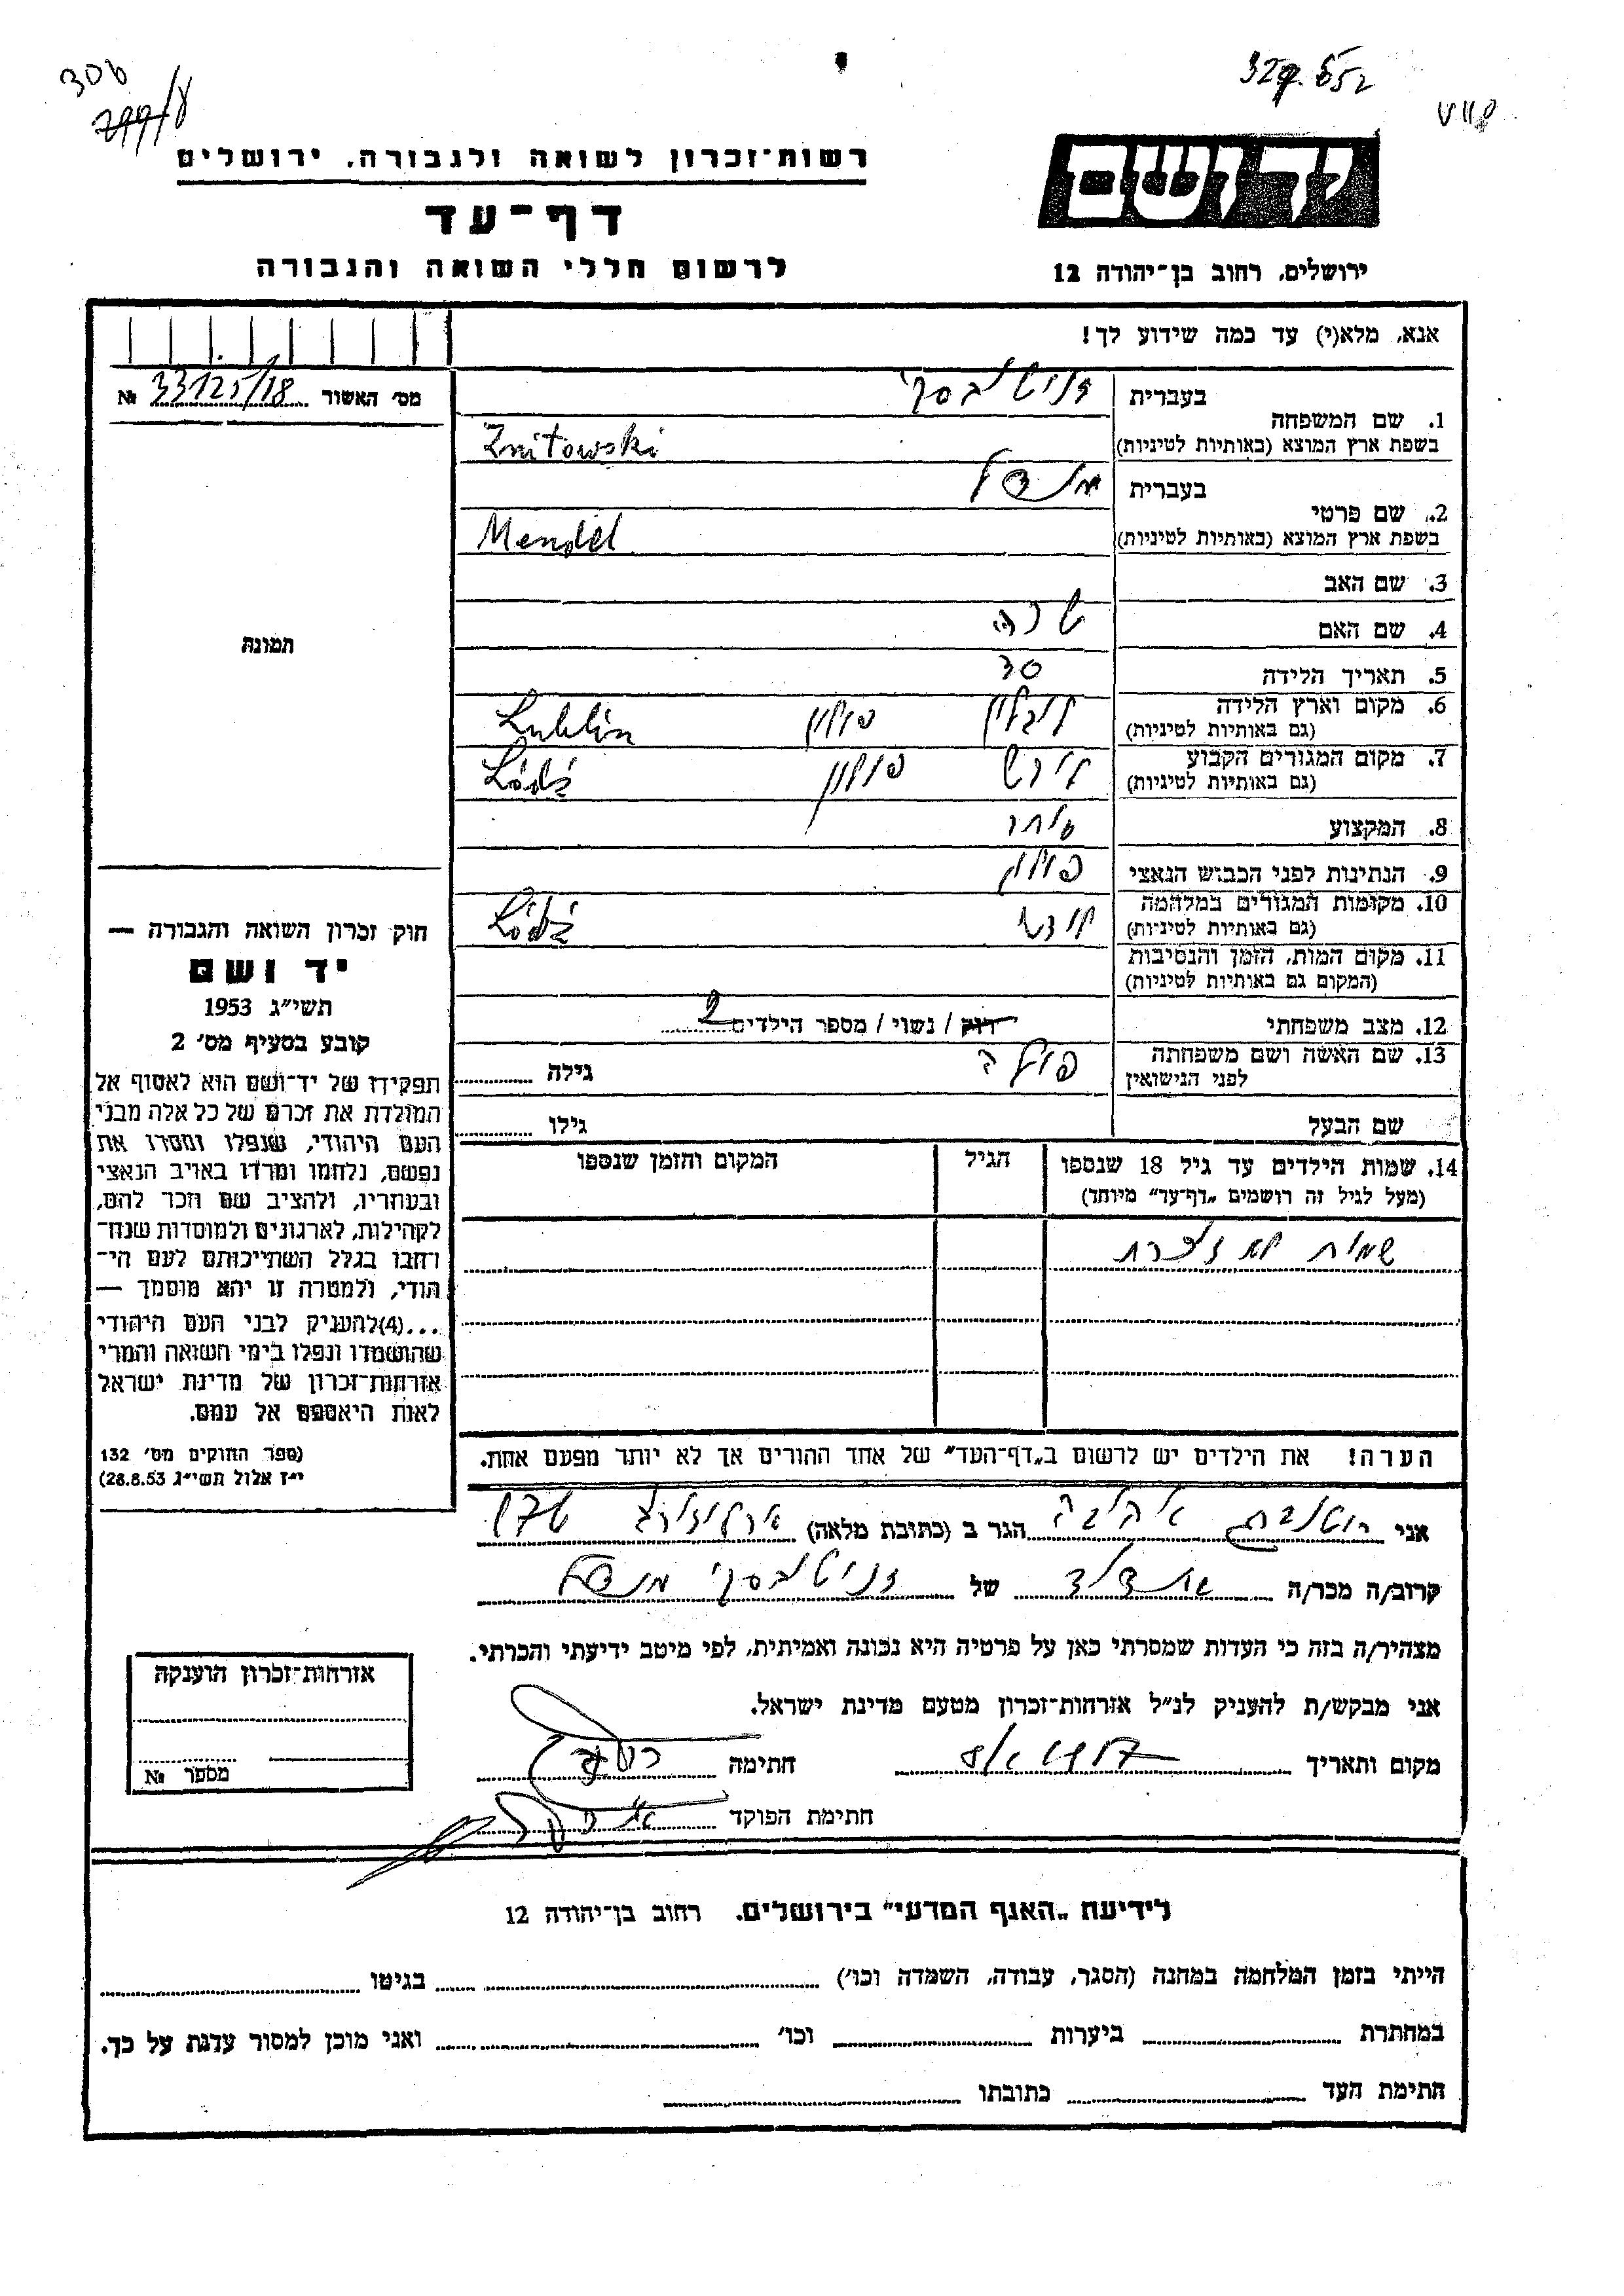 306
299/8
329.552
רשות־זכרון לשואה ולגבורה, ירושלים
יד ושם
דף־עד
לרשום חללי השואה והגבורה
ירושלים, רחוב בן־יהודה 12
אנא, מלא(י) עד כמה שידוע לך!
מס׳ האשור 33125/18 №
1. שם המשפחה
בעברית זניטובסקי
בשפת ארץ המוצא (באותיות לטיניות) Znitowski
2. שם פרטי
בעברית מנדל
בשפת ארץ המוצא (באותיות לטיניות) Mendel
3. שם האב
4. שם האם שרה
5. תאריך הלידה 30
6. מקום וארץ הלידה לובלין פולין Lublin
(גם באותיות לטיניות)
7. מקום המגורים הקבוע לודש פולין Łódź
(גם באותיות לטיניות)
8. המקצוע סוחר
9. הנתינות לפני הכבוש הנאצי פולין
10. מקומות המגורים במלחמה לודש Łódź
(גם באותיות לטיניות)
11. מקום המות, הזמן והנסיבות
(המקום גם באותיות לטיניות)
12. מצב משפחתי רווק / נשוי / מספר הילדים 2
13. שם האשה ושם משפחתה
לפני הנישואין פולה גילה
שם הבעל גילו
14. שמות הילדים עד גיל 18 שנספו הגיל המקום והזמן שנספו
(מעל לגיל זה רושמים „דף־עד” מיוחד)
שמות לא זוכרת
הערה! את הילדים יש לרשום ב„דף־העד” של אחד ההורים אך לא יותר מפעם אחת.
תמונה
חוק זכרון השואה והגבורה —
יד ושם
תשי״ג 1953
קובע בסעיף מס׳ 2
תפקידו של יד־ושם הוא לאסוף אל
המולדת את זכרם של כל אלה מבני
העם היהודי, שנפלו ומסרו את
נפשם, נלחמו ומרדו באויב הנאצי
ובעוזריו, ולהציב שם וזכר להם,
לקהילות, לארגונים ולמוסדות שנח־
רבו בגלל השתייכותם לעם הי־
הודי, ולמטרה זו יהא מוסמך —
...(4) להעניק לבני העם היהודי
שהושמדו ונפלו בימי השואה והמרי
אזרחות־זכרון של מדינת ישראל
לאות היאספם אל עמם.
(ספר החוקים מס׳ 132
י״ז אלול תשי״ג 28.8.53)
אני רוטנברג הגר ב (כתובת מלאה) ארלוזורוב
קרוב/ה מכר/ה של זניטובסקי מנדל
מצהיר/ה בזה כי העדות שמסרתי כאן על פרטיה היא נכונה ואמיתית, לפי מיטב ידיעתי והכרתי.
אני מבקש/ת להעניק לנ״ל אזרחות־זכרון מטעם מדינת ישראל.
מקום ותאריך חתימה
חתימת הפוקד
אזרחות־זכרון הוענקה
מספר №
לידיעת „האגף המדעי” בירושלים. רחוב בן־יהודה 12
הייתי בזמן המלחמה במחנה (הסגר, עבודה, השמדה וכו׳) בגיטו
במחתרת ביערות וכו׳ ואני מוכן למסור עדות על כך.
חתימת העד כתובתו